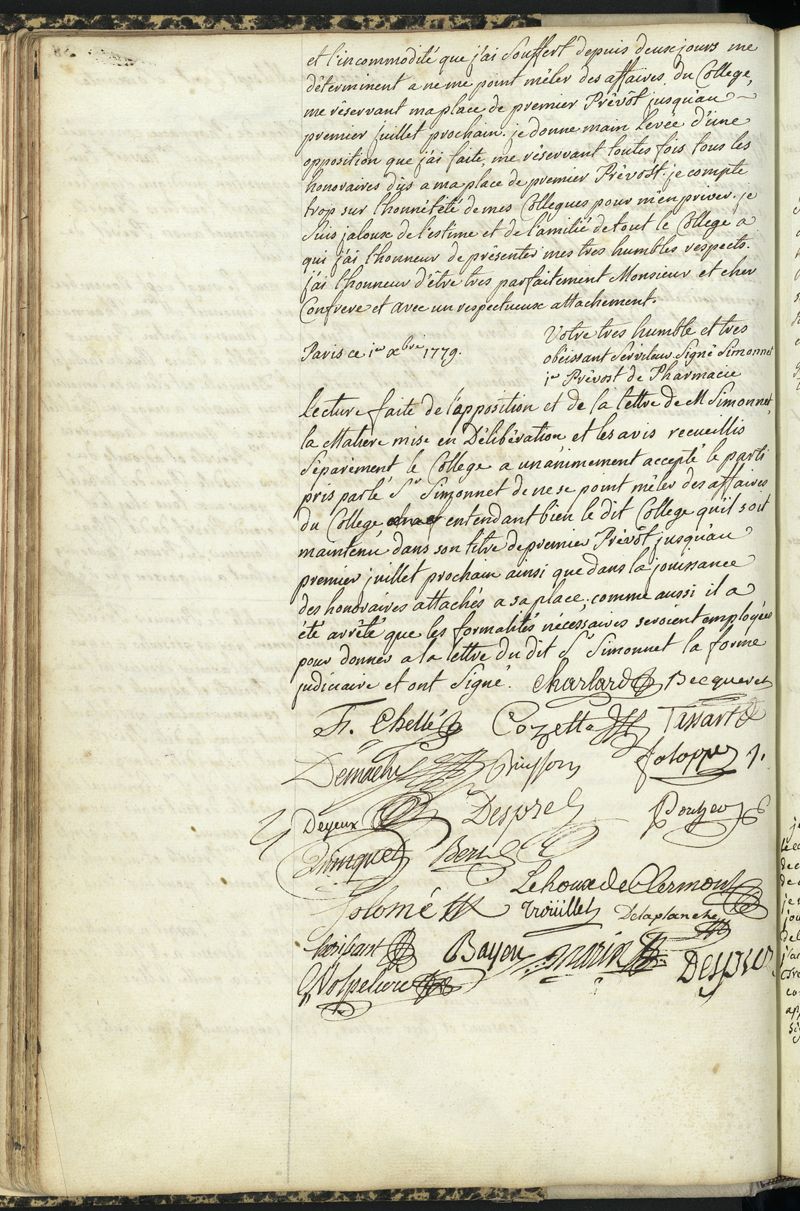 et l'incommodité que j'ai Souffert depuis deux jours me
déterminent a ne me point mêler des affaires du College,
me réservant ma place de premier Prévôt jusqu'au
premier juillet prochain. je donne main Levée d'une
opposition que j'ai faite, me réservant toutes fois tous les
honoraires dûs a ma place de premier Prévôst. je compte
trop sur l'honnêteté de mes Collegues pour m'en priver. je
Suis jaloux de l'estime et de l'amitié de tout le College a
qui j'ai l'honneur de présenter mes tres humbles respects.
j'ai l'honneur d'être tres parfaitement Monsieur et cher
Confrere et avec un respectueux attachement.
Votre tres humble et tres
Paris ce 1er xbre 1779.
obéissant Serviteur Signé Simonnet
1er Prévost de Pharmacie
Lecture faite de l'apposition et de la lettre de M Simonnet,
la Matiere mise en Délibération et les avis recueillis
Séparément le College a unanimement accepté le parti
pris par le Sr Simonnet de ne se point mêler des affaires
du College entendant bien le dit College qu'il soit
maintenu dans son titre de premier Prévôt jusqu'au
premier juillet prochain ainsi que dans la jouissance
des honoraires attachés a sa place; comme aussi il a
été arrêté que les formalités nécessaires seroient employées
pour donner a la lettre du dit Sr Simonnet la forme
judiciaire et ont Signé. Charlard Becqueret
F. Chellé Cozette Tissart
Demachy Buisson
Deyeux Desprez
Trinquet
Solomé Lehoux de Clermont
Troüillet Delaplanche
Bayen Morin Despres